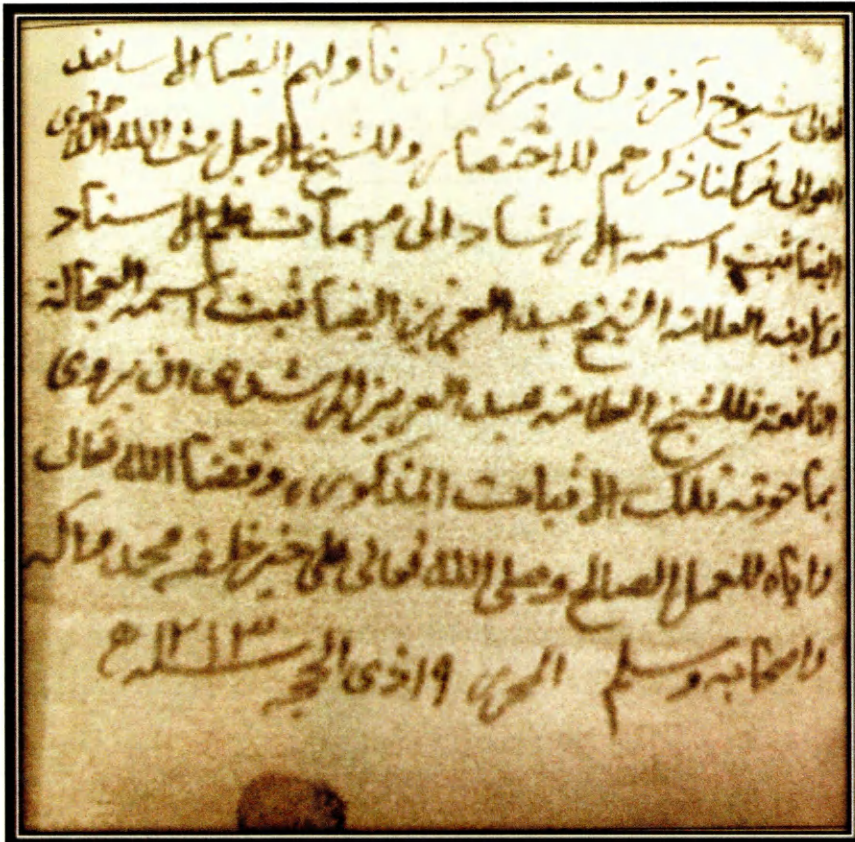 تعالى شيوخ آخرون غير هذا ولهم ايضا الاسانيد
العوالي تركنا ذكرهم للاختصار وللشيخ الاجل ولي الله الدهلوى
ايضا ثبت اسمه الارشاد الى مهمات علم الاسناد
ولابنه العلامة الشيخ عبد العزيز ايضا ثبت اسمه العجالة
النافعة فللشيخ العلامة عبد العزيز ان يروى
بما حوته تلك الاثبات المذكورة وفقنا الله تعالى
واياه للعمل الصالح وصلى الله تعالى على خير خلقه محمد وآله
واصحابه وسلم المحرر ١٩ ذى الحجه